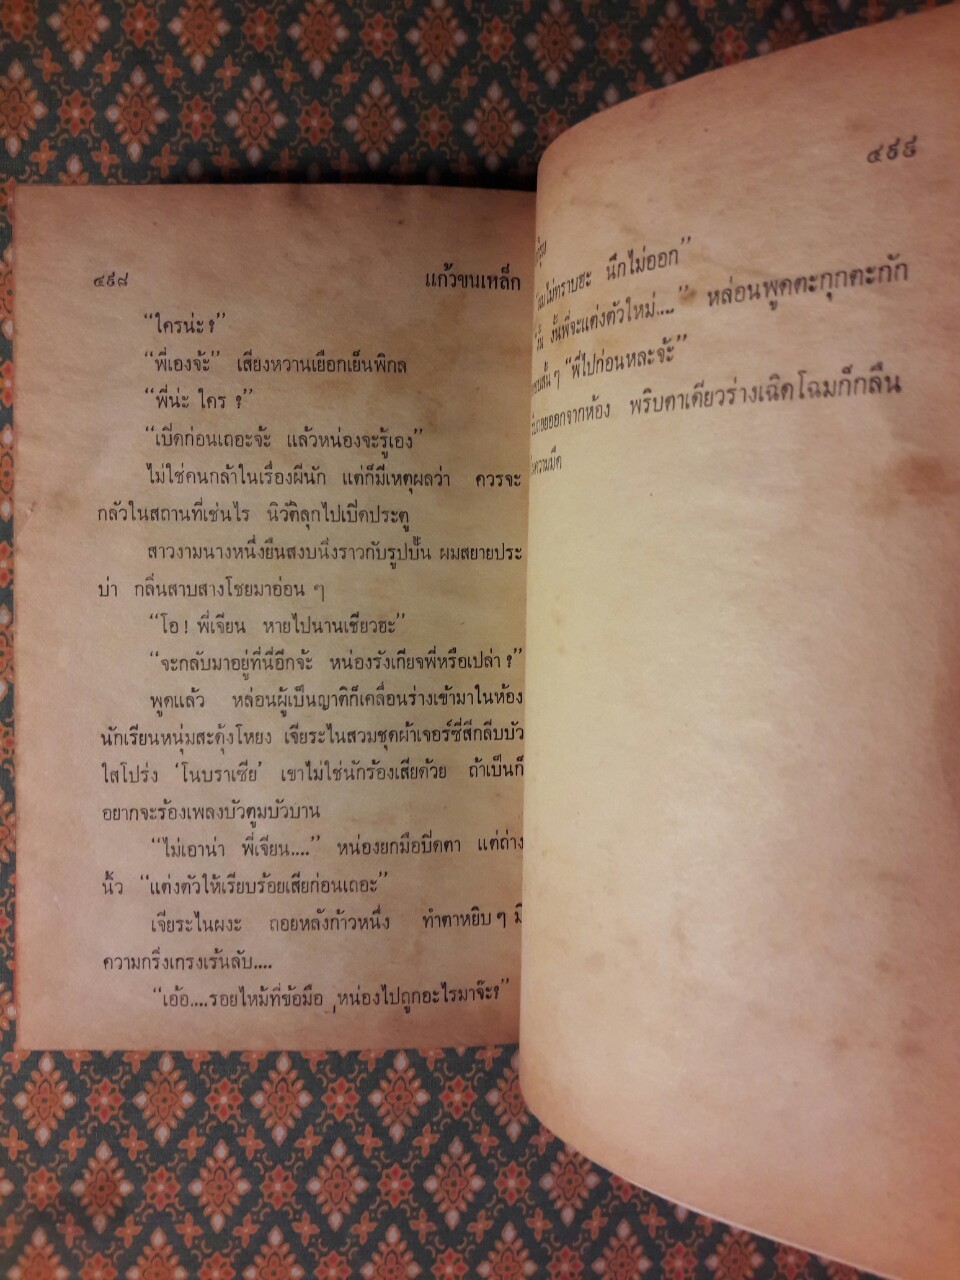 ๔๙๘ แก้วขนเหล็ก
“ใครน่ะ?”
“พี่เองจ้ะ” เสียงหวานเยือกเย็นพิกล
“พี่น่ะ ใคร ?”
“เปิดก่อนเถอะจ้ะ แล้วหน่องจะรู้เอง”
ไม่ใช่คนกล้าในเรื่องผีนัก แต่ก็มีเหตุผลว่า ควรจะ
กลัวในสถานที่เช่นไร นิวัติลุกไปเปิดประตู
สาวงามนางหนึ่งยืนสงบนิ่งราวกับรูปปั้น ผมสยายประ
บ่า กลิ่นสาบสางโชยมาอ่อน ๆ
“โอ! พี่เจียน หายไปนานเชียวฮะ”
“จะกลับมาอยู่ที่นี่อีกจ้ะ หน่องรังเกียจพี่หรือเปล่า?”
พูดแล้ว หล่อนผู้เป็นญาติก็เคลื่อนร่างเข้ามาในห้อง
นักเรียนหนุ่มสะดุ้งโหยง เจียระไนสวมชุดผ้าเจอร์ซี่สีกลีบบัว
ใสโปร่ง ‘โนบราเซีย’ เขาไม่ใช่นักร้องเสียด้วย ถ้าเป็นก็
อยากจะร้องเพลงบัวตูมบัวบาน
“ไม่เอาน่า พี่เจียน....” หน่องยกมือปิดตา แต่ถ่าง
นิ้ว “แต่งตัวให้เรียบร้อยเสียก่อนเถอะ”
เจียระไนผงะ ถอยหลังก้าวหนึ่ง ทำตาหยิบ ๆ มี
ความกริ่งเกรงเร้นลับ....
“เอ้อ....รอยไหม้ที่ข้อมือ หน่องไปถูกอะไรมาจ๊ะ?”
๔๙๙
ไม่ทราบฮะ นึกไม่ออก”
งั้นพี่จะแต่งตัวใหม่....” หล่อนพูดตะกุกตะกัก
สั้น ๆ “พี่ไปก่อนหละจ้ะ”
ออกจากห้อง พริบตาเดียวร่างเฉิดโฉมก็กลืน
ความมืด